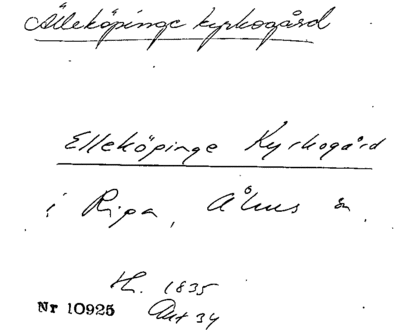 Älleköpinge kyrkogård
Elleköpinge Kyrkogård
i Ripa, Åhus sn.
H. 1835
Nr 10925 Ant 34